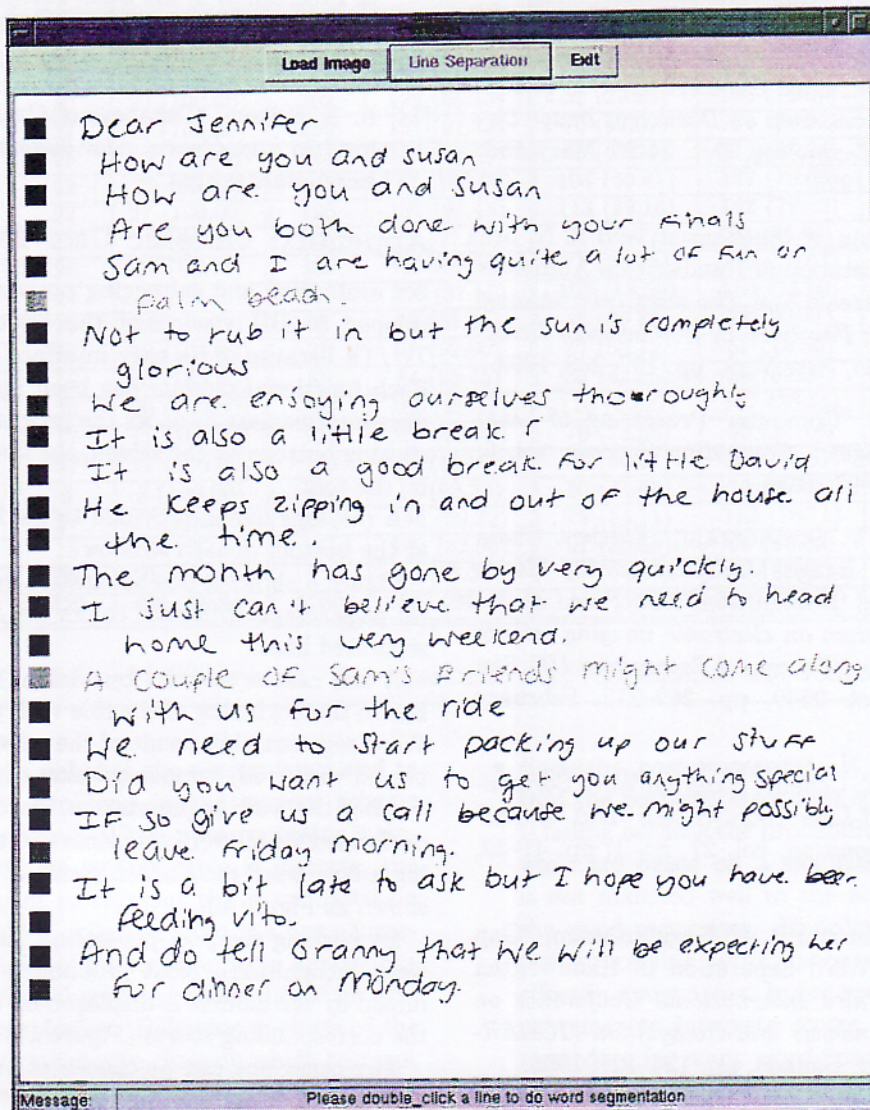 Load Image Line Separation Exit
Dear Jennifer
How are you and susan
How are you and susan
Are you both done with your finals
Sam and I are having quite a lot of fun on
calm beach.
Not to rub it in but the sun is completely
glorious
We are enjoying ourselves thoroughly
It is also a little break f
It is also a good break for little David
He keeps zipping in and out of the house all
the time.
The month has gone by very quickly.
I just can't believe that we need to head
home this very weekend.
A couple of Sam's friends might come along
with us for the ride
We need to start packing up our stuff
Did you want us to get you anything special
If so give us a call because we might possibly
leave Friday morning.
It is a bit late to ask but I hope you have been
feeding vito.
And do tell Granny that we will be expecting her
for dinner on Monday.
Message: Please double_click a line to do word segmentation